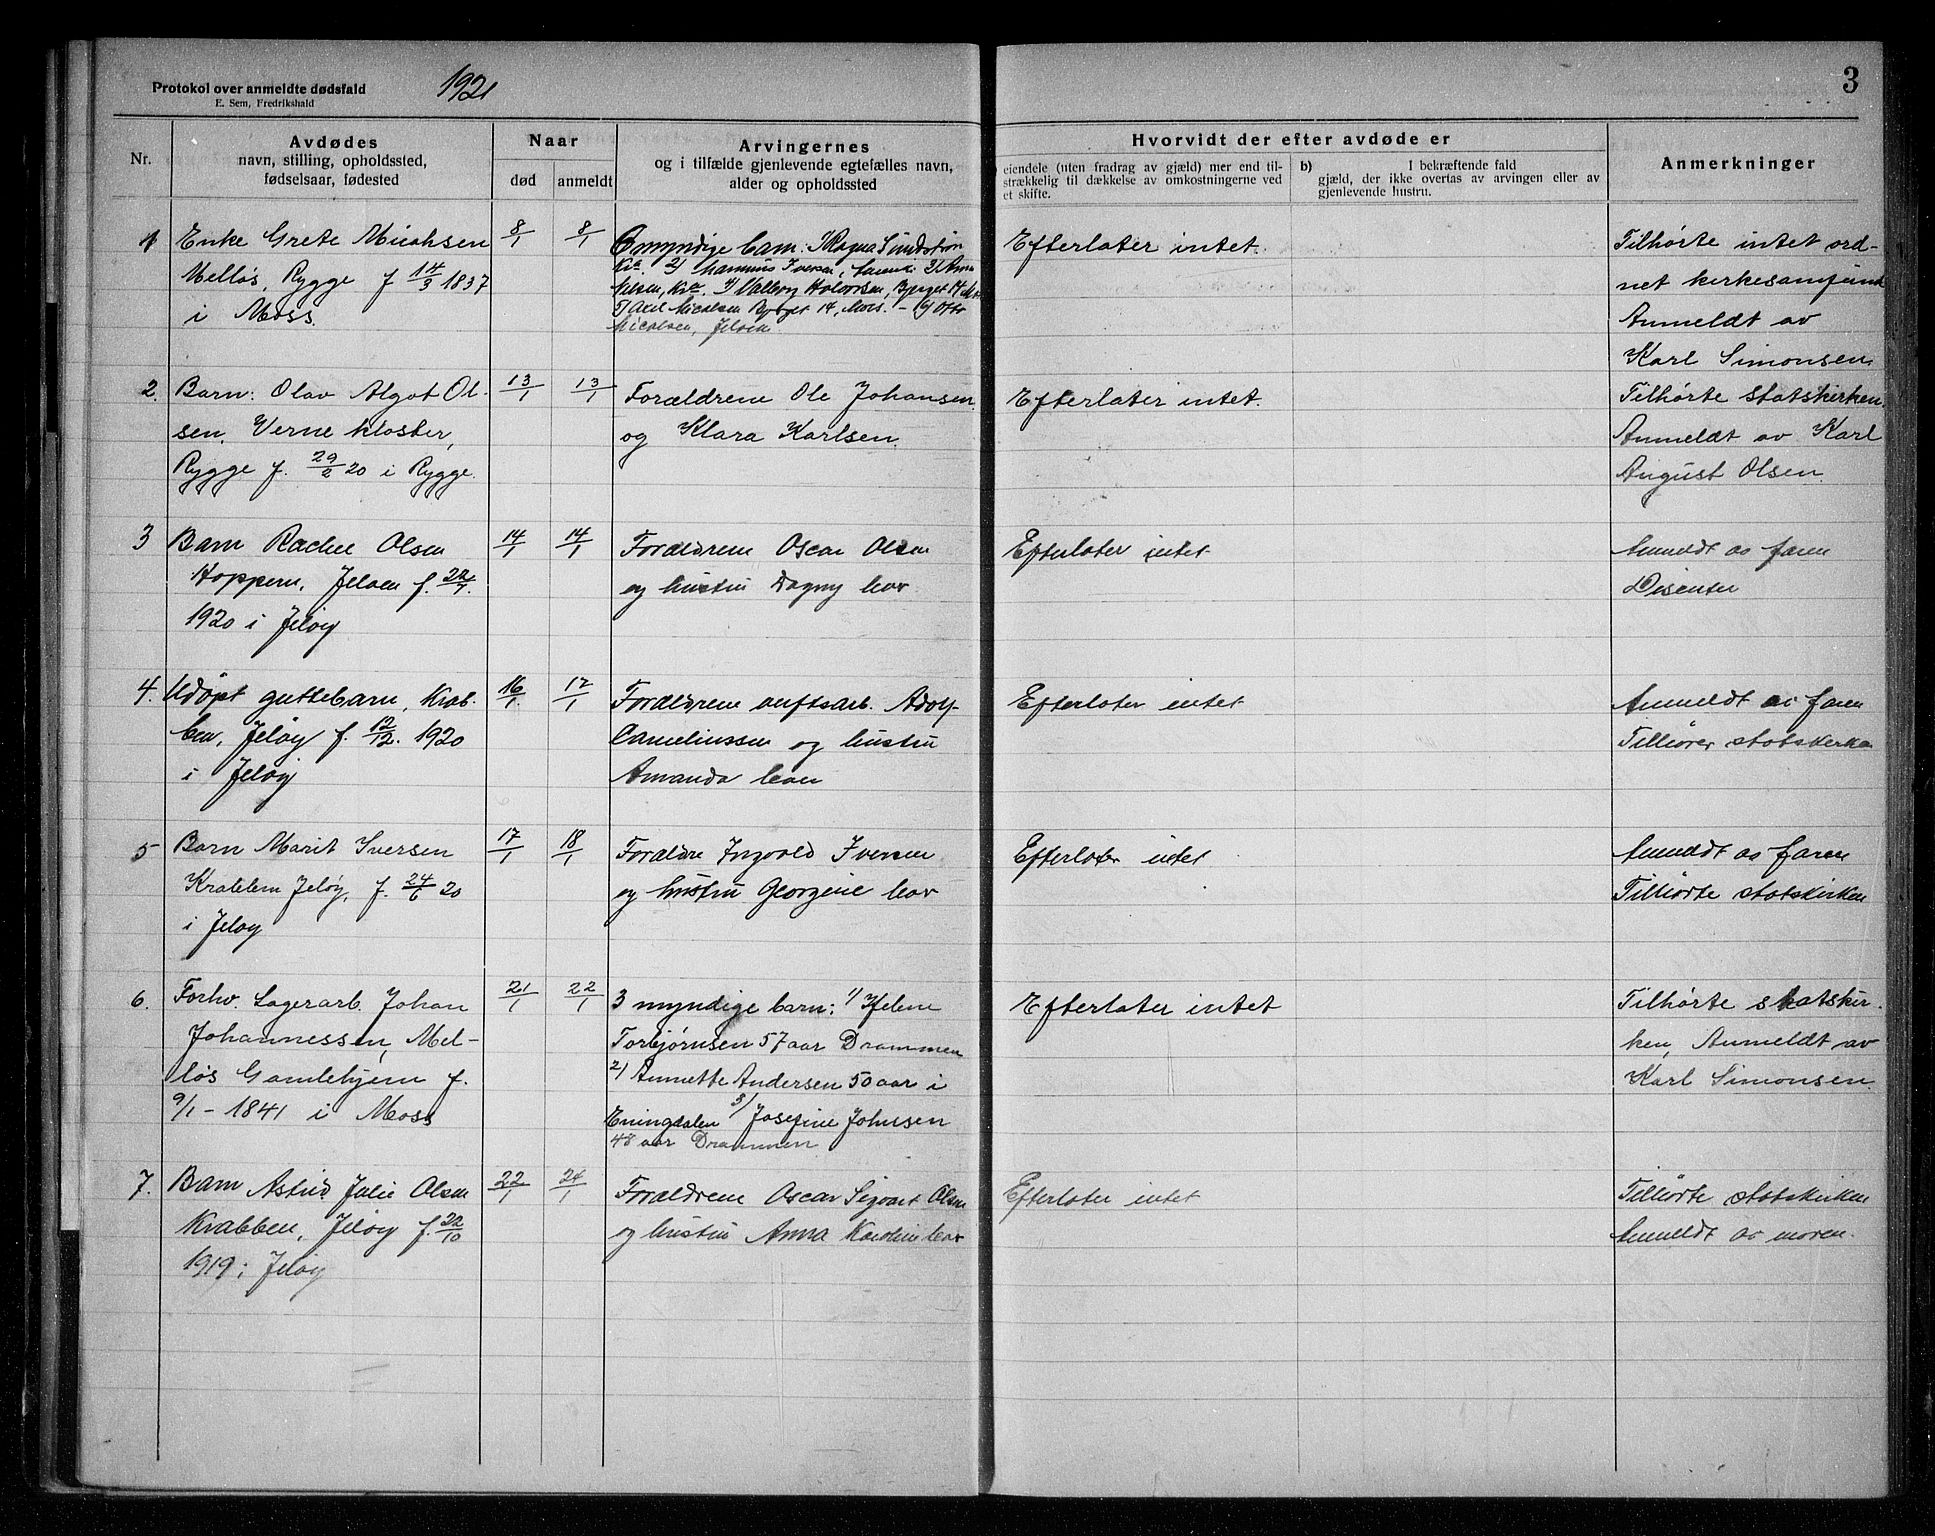 Protokol over anmeldte dødsfald
E. Sem, Fredrikshald
1921
3
Nr.
Avdødes
navn, stilling, opholdssted,
fødselsaar, fødested
Naar
død
anmeldt
Arvingernes
og i tilfælde gjenlevende egtefælles navn,
alder og opholdssted
Hvorvidt der efter avdøde er
eiendele (uten fradrag av gjæld) mer end til-
strækkelig til dækkelse av omkostningerne ved
et skifte.
b) I bekræftende fald
gjæld, der ikke overtas av arvingen eller av
gjenlevende hustru.
Anmerkninger
1
Enke Grete
Melløs, Rygge f 14/3 1837
i Moss.
8/1
8/1
6 myndige barn: 1) Ragna
2) Iversen, 3) Anna
4) Valborg Halvorsen, 14
5) Axel Nicolsen 14, Moss. - 6) Otto
Nicolsen, Jeløen
Efterlater intet.
Tilhørte intet ord-
net kirkesamfund
Anmeldt av
Karl Simonsen.
2.
Barn: Olav Algot Ol-
sen, Verne kloster,
Rygge f. 29/2 20 i Rygge.
13/1
13/1
Forældrene Ole Johansen
og Klara Karlsen.
Efterlater intet.
Tilhørte statskirken.
Anmeldt av Karl
August Olsen.
3
Barn Rachel Olsen
Hoppern, Jeløen f. 22/7.
1920 i Jeløy
14/1
14/1
Forældrene Oscar Olsen
og hustru Dagny her
Efterlater intet
Anmeldt av faren
Disenter
4.
Udøpt guttebarn, Krab-
ben, Jeløy f. 12/12. 1920
i Jeløy
16/1.
17/1
Forældrene verftsarb. Adolf
og hustru
Amanda her
Efterlater intet
Anmeldt av faren
Tilhører statskirken
5
Barn Marit Iversen
Krabben Jeløy, f. 24/6 20
i Jeløy
17/1
18/1
Forældre Ingvald Iversen
og hustru Georgine her
Efterlater intet
Anmeldt av faren
Tilhørte statskirken
6.
Forhv. Lagerarb. Johan
Johannessen, Mel-
løs Gamlehjem f.
9/1 - 1841 i Moss
21/1
22/1
3 myndige barn: 1) Helene
Torbjørnsen 57 aar Drammen
2) Annette Andersen 50 aar i
Eningdalen 3) Josefine Johnsen
48 aar Drammen
Efterlater intet
Tilhørte statskir-
ken, Anmeldt av
Karl Simonsen.
7.
Barn Astrid Julie Olsen
Krabben, Jeløy f. 22/10
1919 i Jeløy
22/1
24/1
Forældrene Oscar Sigvart Olsen
og hustru Anna Karoline her
Efterlater intet
Tilhørte statskirken
Anmeldt av moren.